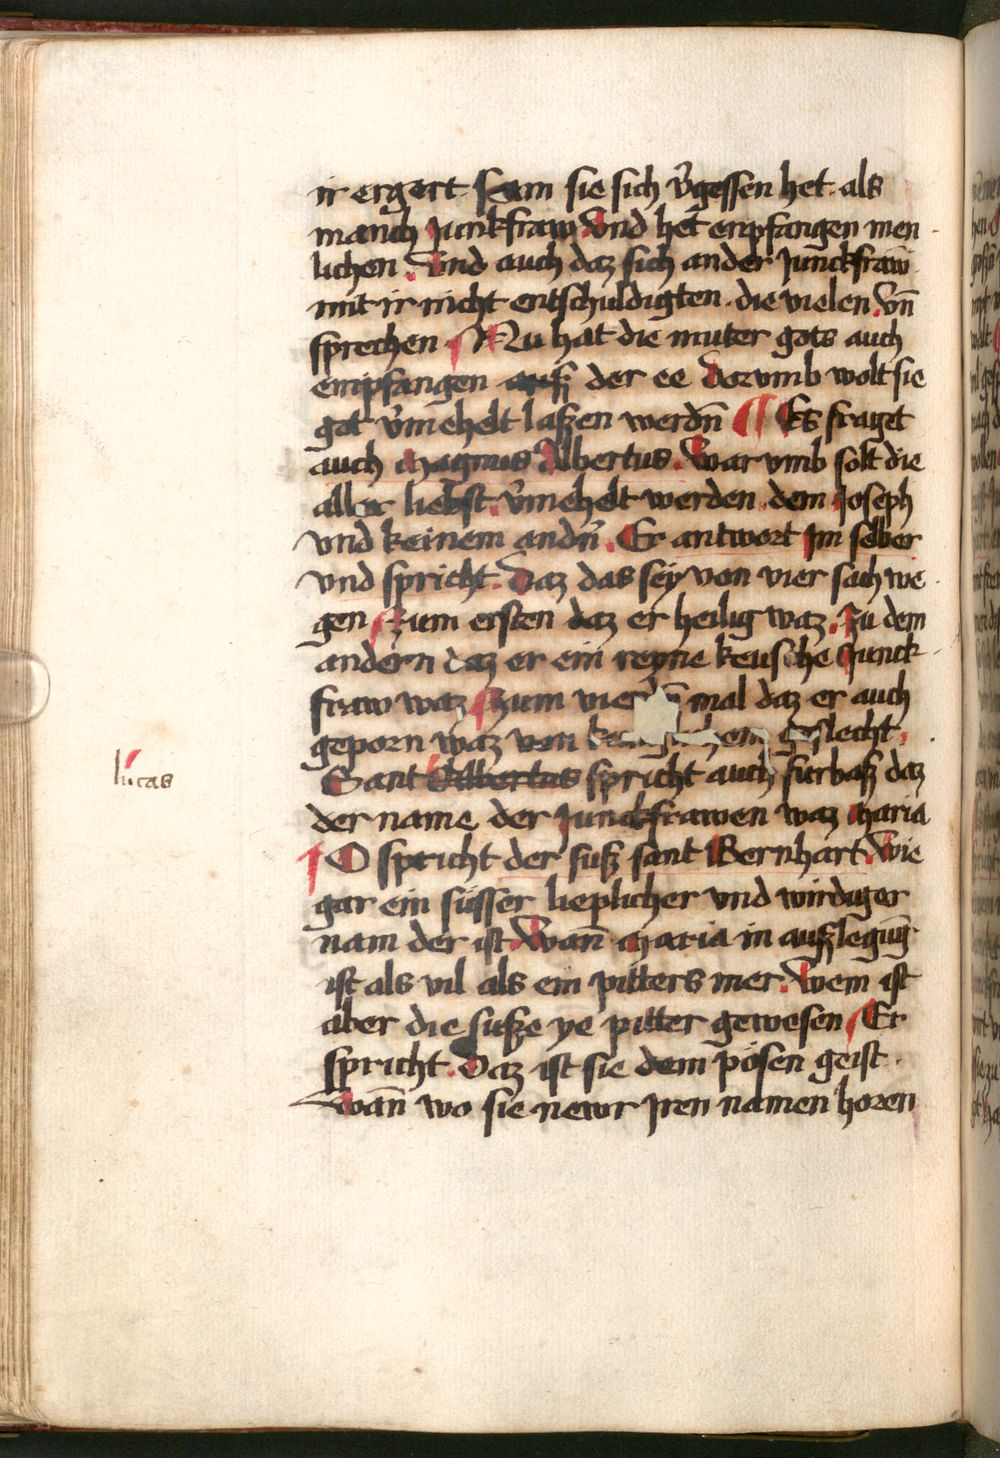 ir ergert. Sam sie sich v̾gessen het. als
manch Junkfraw. Vnd het enpfangen men
lichen. Vnd auch daz sich ander Junckfraw
mit ir nicht entschuldigten. die vielen. vn̄
sprechen. Nu hat die muter gots auch
empfangen auß der ee Dorvmb wolt sie
got v̾mehelt laßen werdn̄ Es fraget
auch Magnus Albertus. War vmb solt die
aller liebst. v̾mehelt werden. dem Joseph
vnd keinem andn̄. Er antwort Im selber
vnd spricht. Daz das sey von vier sach we
gen Zum ersten daz er heilig waz. Zu dem
andern daz er ein reyne keusche Junck
fraw waz Zum mal daz er auch
geporn waz von geslecht.
lucas
Sant Albertus spricht auch furbaß daz
der name der Junckfrawen waz Maria
O spricht der suß sant Bernhart. Wie
gar ein süsser lieplicher vnd wirdiger
nam der ist. Wan̄ Maria in außlegūg
ist als vil als ein pitters mer. Wem ist
aber die suße ye pitter gewesen Er
spricht. Daz ist sie dem pösen geist.
Wan̄ wo sie newr Jren namen horen